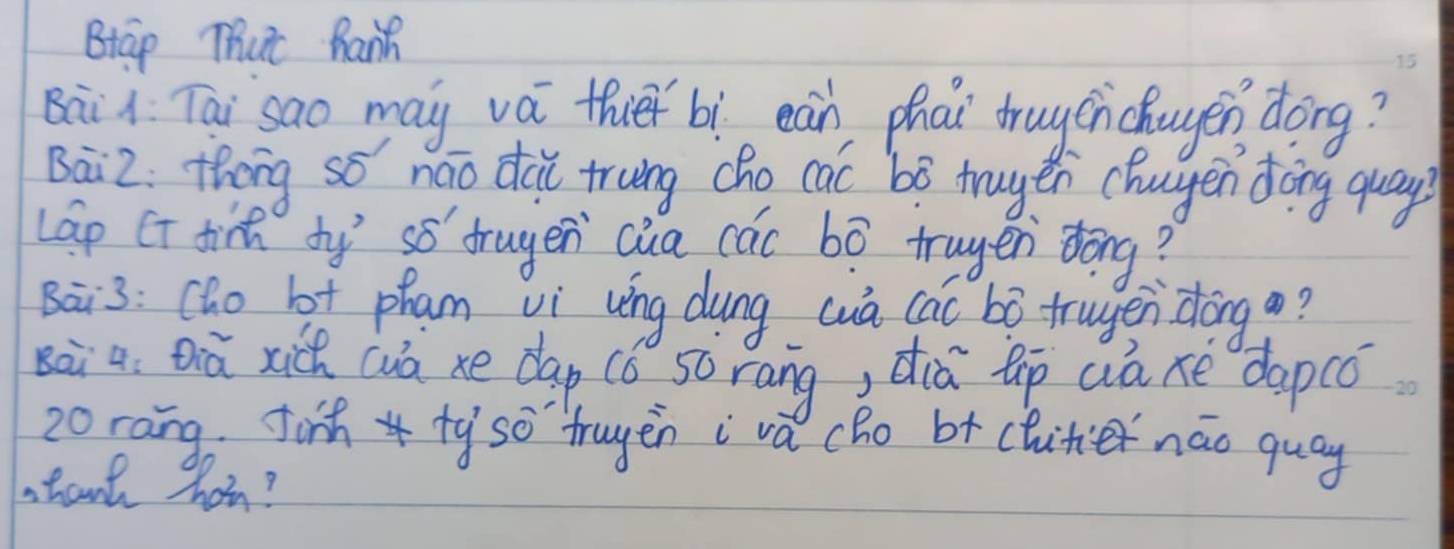 Btập Thực hành
15
Bài 1: Tại sao máy và thiết bị cần phải truyền chuyển động?
Bài 2: thông số nào đặc trưng cho các bộ truyền chuyển động quay?
Lập CT tính tỷ số truyền của các bộ truyền động?
Bài 3: Cho bt phạm vi ứng dụng của các bộ truyền động?
Bài 4: Đĩa xích của xe đạp có 50 răng, đĩa líp của xe đạp có
20
20 răng. Tính tỷ số truyền i và cho bt chi tiết nào quay
nhanh hơn?